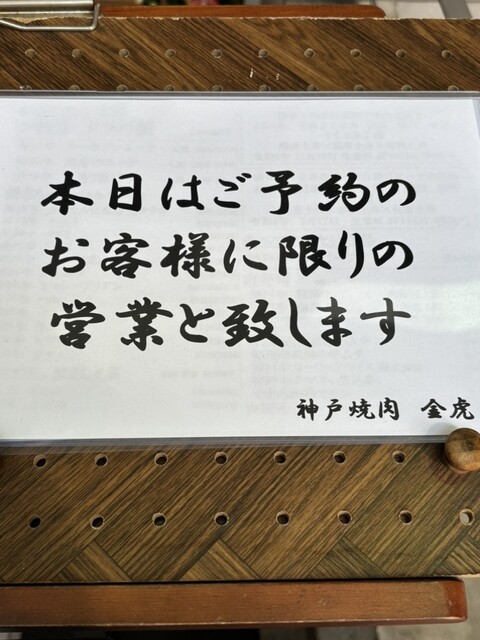 本日はご予約の
お客様に限りの
営業と致します
神戸焼肉 金虎